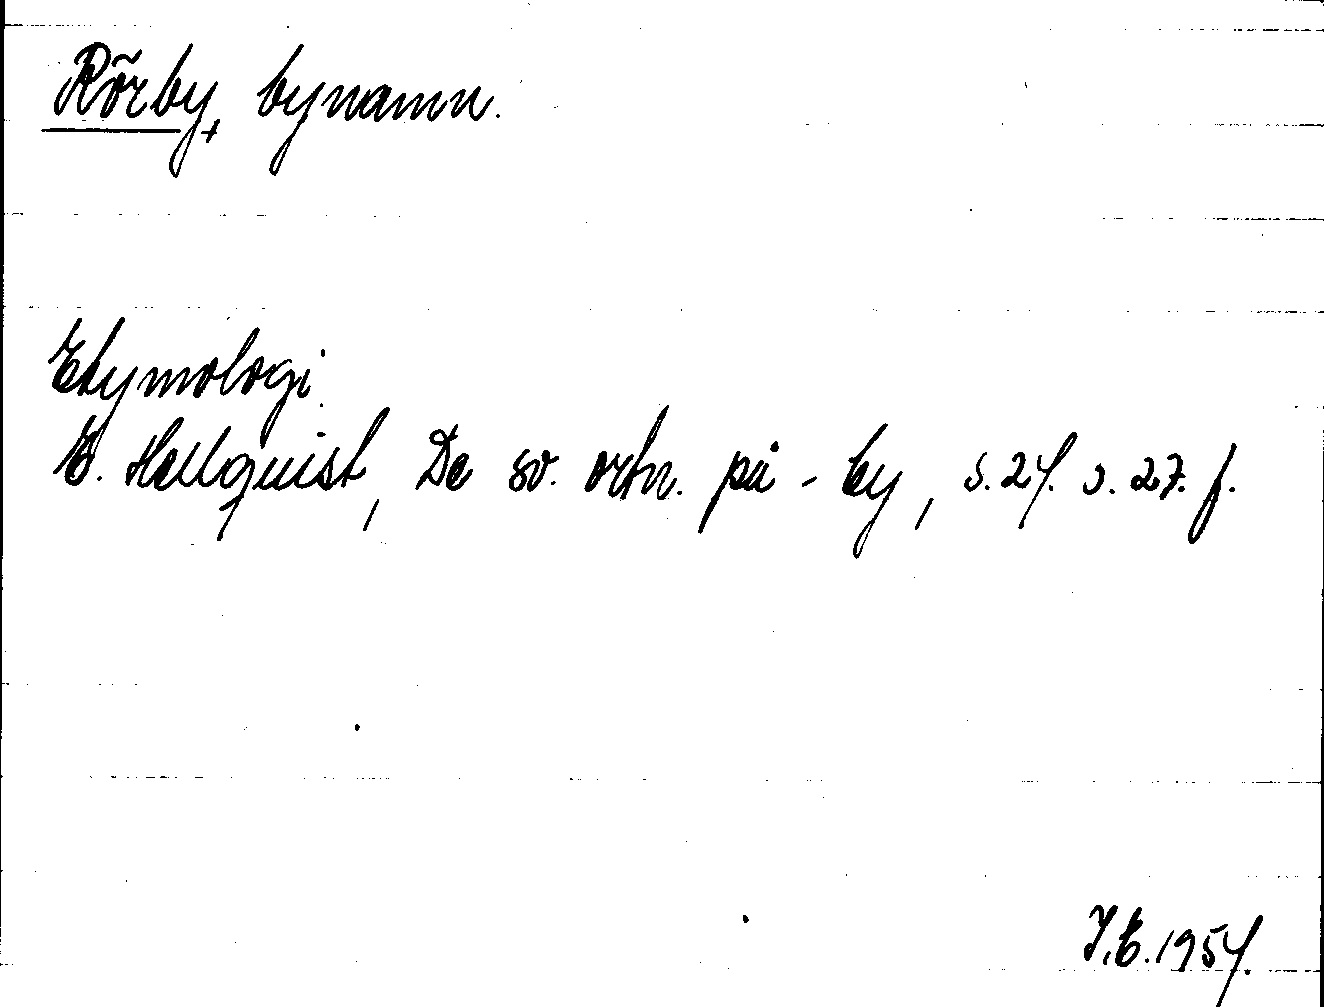 Rörby, bynamn.
Etymologi
E. Hellquist, De sv. ortn. på - by, s. 24. s. 27. f.
I.E. 1954.